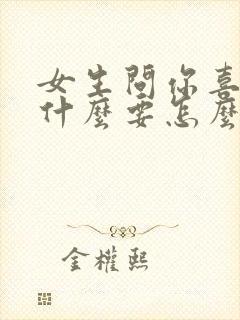 女生問你喜
什麼要怎麼
金權熙